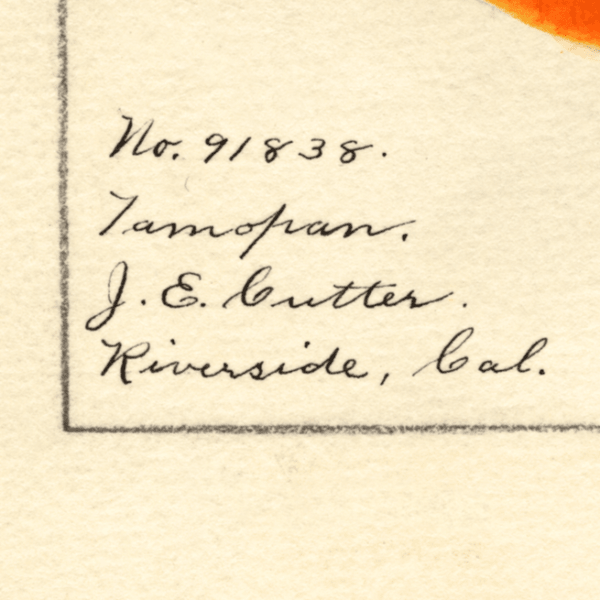 No. 91838.
Tamopan.
J. E. Cutter.
Riverside, Cal.